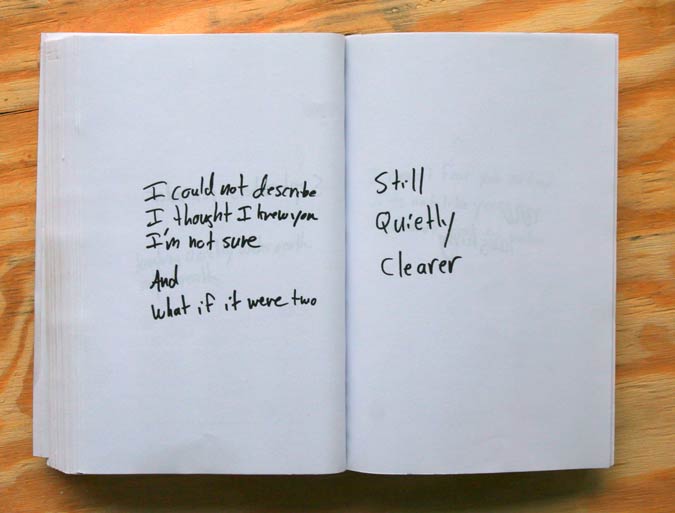 I could not describe
I thought I knew you
I'm not sure
And
what if it were two
Still
Quietly
Clearer